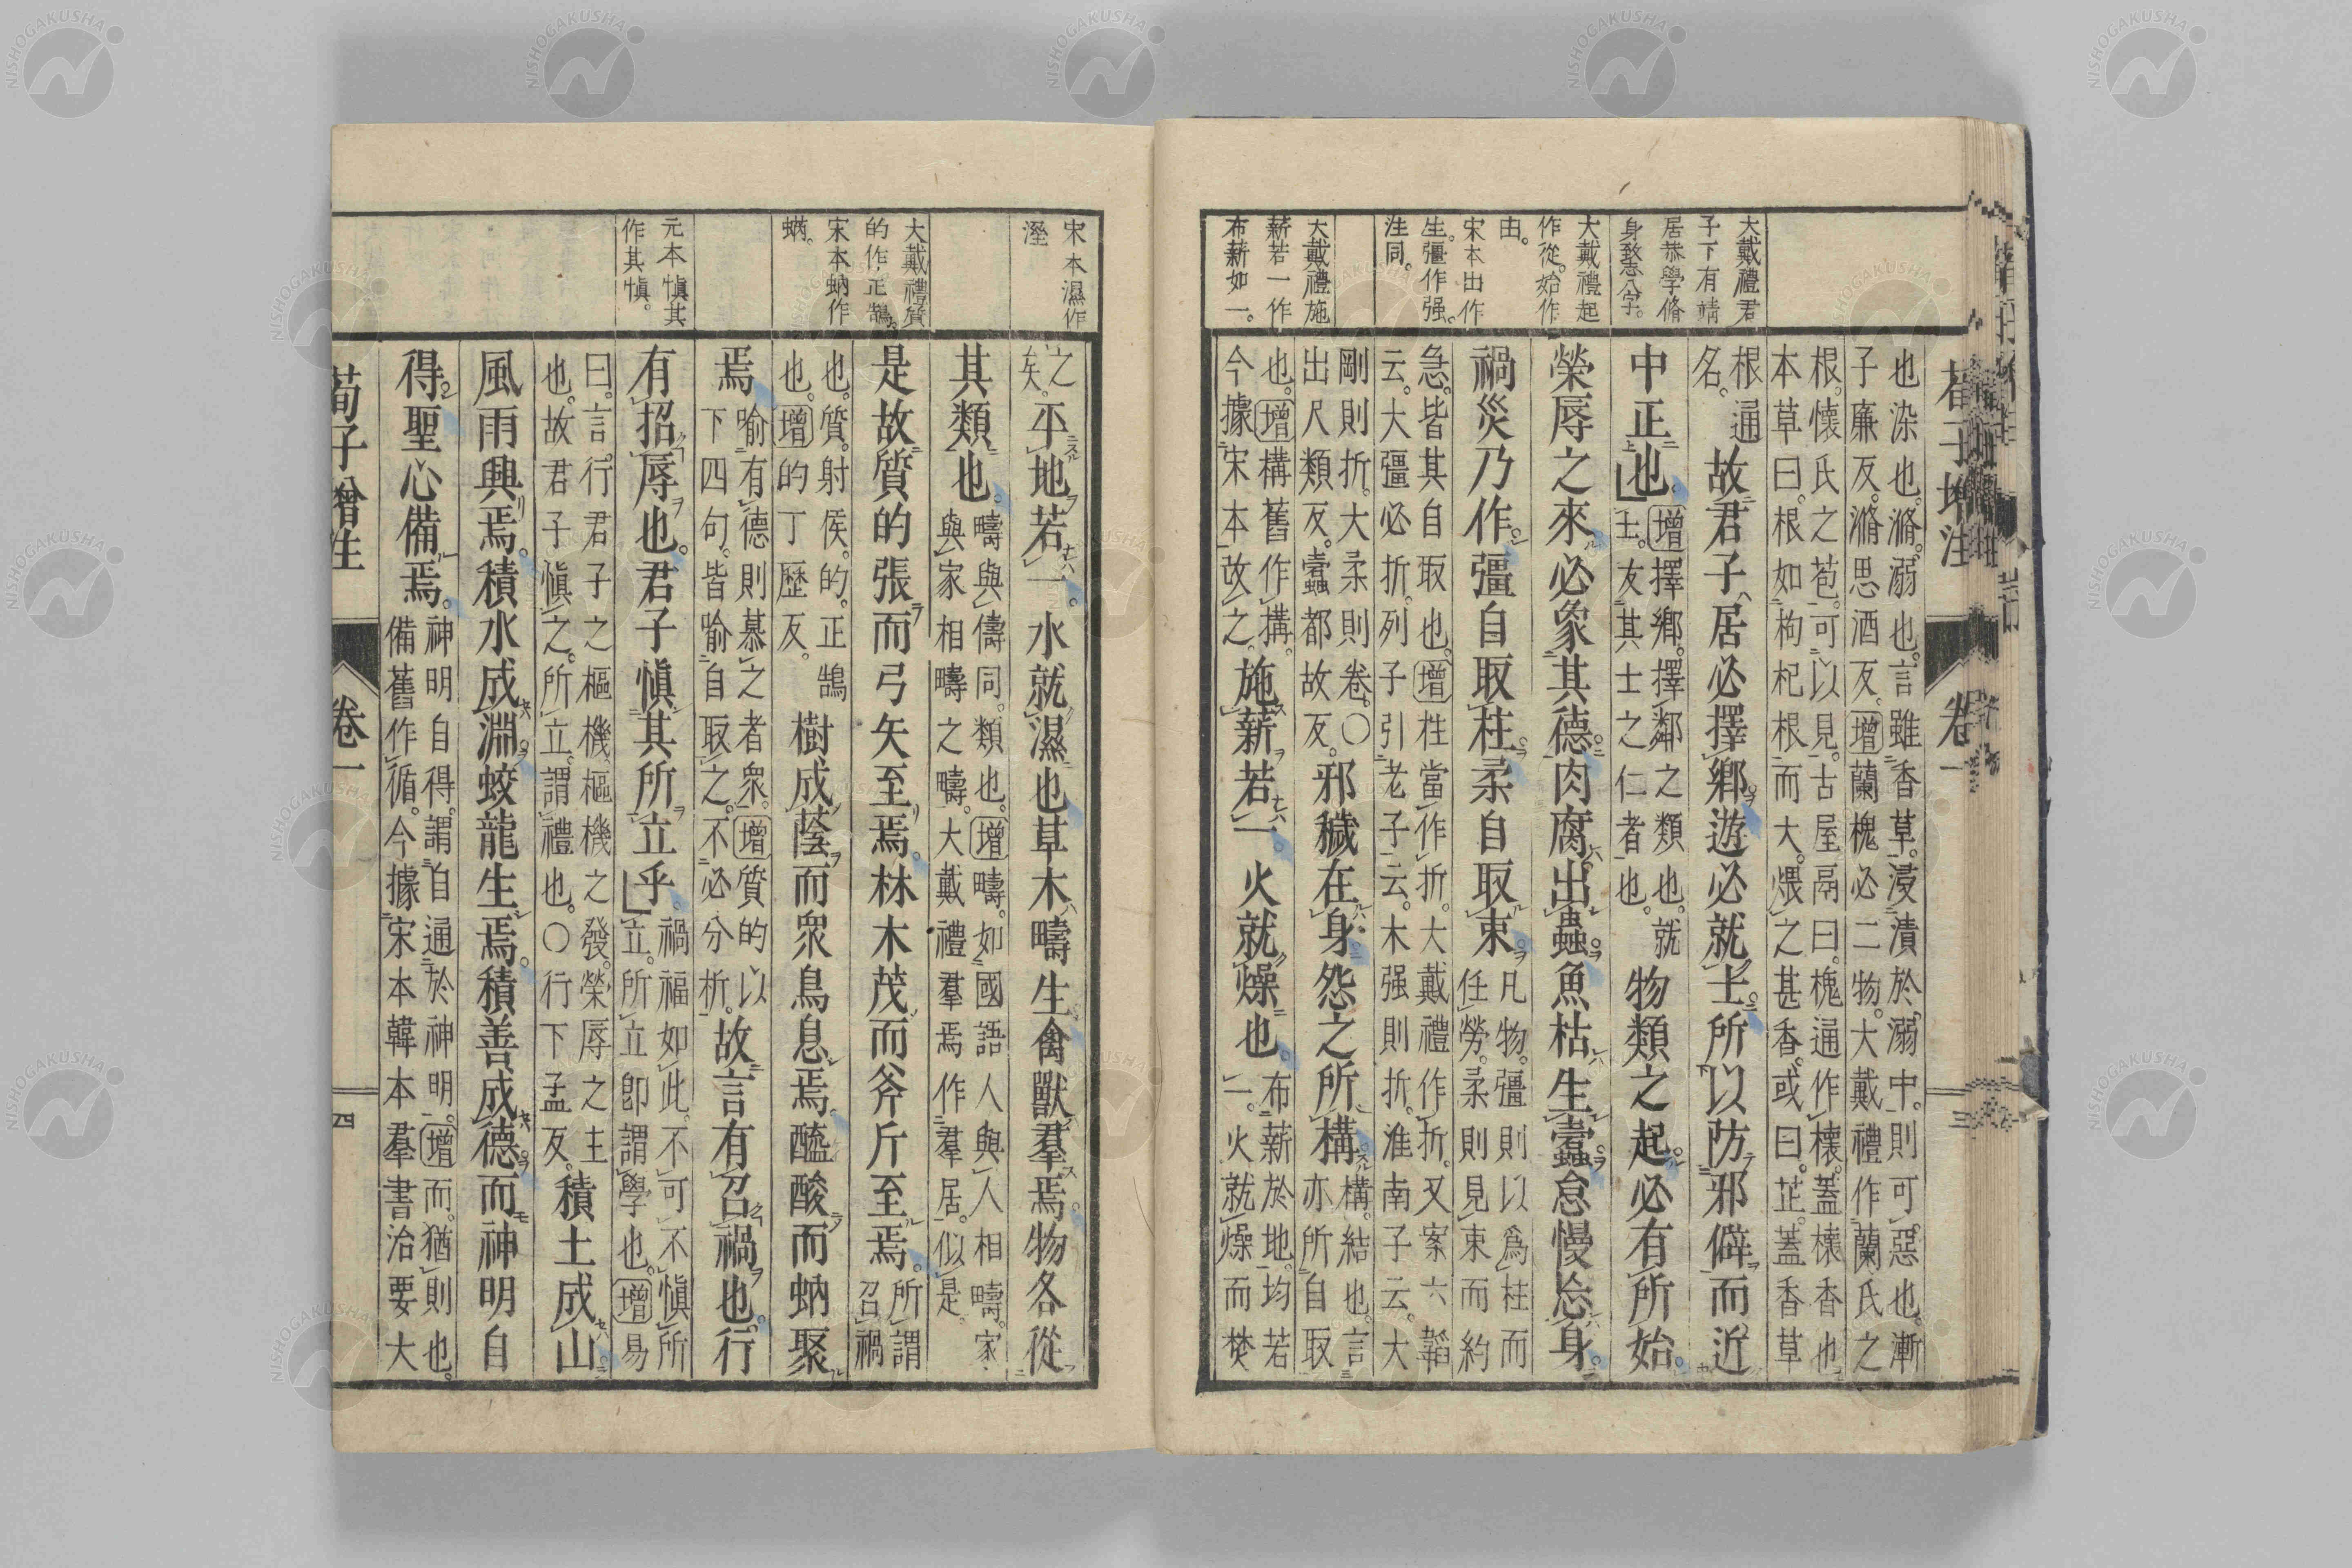 荀子增注 卷一 三
大戴禮君
子下有靖
居恭學脩
身慤志八字。
大戴禮起
作從。始作
由。
宋本出作
生。彊作强。
注同。
大戴禮施
薪若一作
布薪如一。
也染也。滫。溺也。言雖香草。浸漬於溺中。則可惡也。漸
子廉反。滫思酒反。增蘭槐必二物。大戴禮作蘭氏之
根。懷氏之苞。可以見。古屋鬲曰。槐通作櫰。蓋櫰香也
本草曰。根如枸杞根而大。煨之甚香。或曰。芷。蓋香草
根通
名。
故君子居必擇鄉。遊必就士。所以防邪僻而近
中正也。
增擇鄉。擇鄰之類也。就
士。友其士之仁者也。
物類之起。必有所始。
榮辱之來必象其德。肉腐出蟲。魚枯生蠹。怠慢忘身。
禍災乃作。彊自取柱。柔自取束。
凡物。彊則以爲柱而
任勞。柔則見束而約
急。皆其自取也。增柱當作折。大戴禮作折。又案六韜
云。大彊必折。列子引老子云。木强則折。淮南子云。大
剛則折。大柔則卷。〇
出尺類反。蠹都故反。
邪穢在身。怨之所構。
構。結也。言
亦所自取
也。增構舊作搆。
今據宋本改之。
施薪若一。火就燥也。
布薪於地。均若
一。火就燥而焚
宋本濕作
溼
大戴禮質
的作正鵠
宋本蚋作
蜹。
元本慎其
作其愼。
之
矣。
平地若一。水就濕也草木疇生禽獸羣焉。物各從
其類也。
疇與儔同。類也。增疇。如國語人與人相疇。家
與家相疇之疇。大戴禮羣焉作羣居。似是。
是故質的張而弓矢至焉。林木茂而斧斤至焉。
所謂
召禍
也。質。射侯。的。正鵠
也。增的丁歷反。
樹成蔭而衆鳥息焉。醯酸而蚋聚
焉
喻有德則慕之者衆。增質的以
下四句。皆喻自取之。不必分析。
故言有召禍也。行
有招辱也。君子愼其所立乎。
禍福如此。不可不愼所
立。所立卽謂學也。增易
曰。言行君子之樞機。樞機之發。榮辱之主
也。故君子愼之。所立。謂禮也。〇行下孟反。
積土成山
風雨興焉。積水成淵。蛟龍生焉。積善成德。而神明自
得。聖心備焉。
神明自得。謂自通於神明。增而。猶則也。
備舊作循。今據宋本韓本羣書治要大
荀子增注 卷一 四